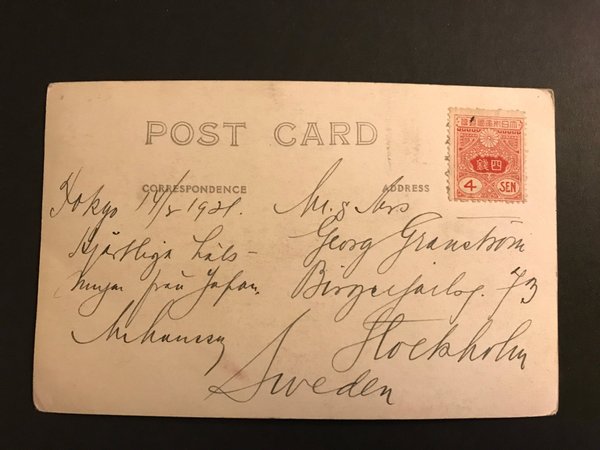 POST CARD
CORRESPONDENCE
ADDRESS
大日本帝國郵便
四銭
4
SEN
Tokyo 14/5 1921.
Hjärtliga häls-
ningar från Japan.
M. & Mrs
Georg Granström
73
Stockholm
Sweden